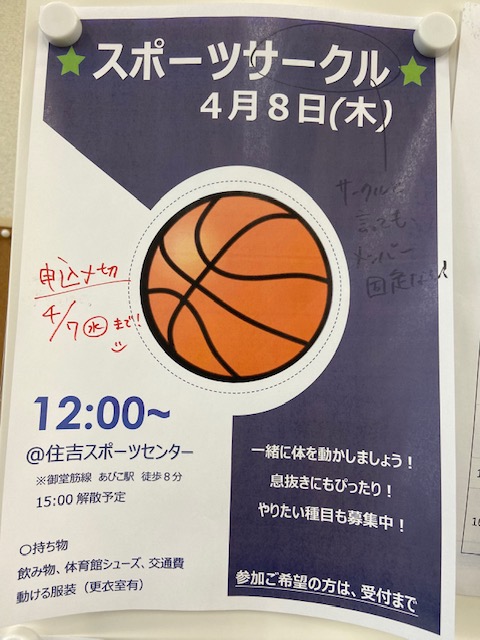 スポーツサークル
4月8日(木)
サークルと
言っても、
メンバー
固定なし!
申込〆切
4/7(水)まで!
12:00~
@住吉スポーツセンター
※御堂筋線 あびこ駅 徒歩8分
15:00 解散予定
一緒に体を動かしましょう!
息抜きにもぴったり!
やりたい種目も募集中!
〇持ち物
飲み物、体育館シューズ、交通費
動ける服装(更衣室有)
参加ご希望の方は、受付まで